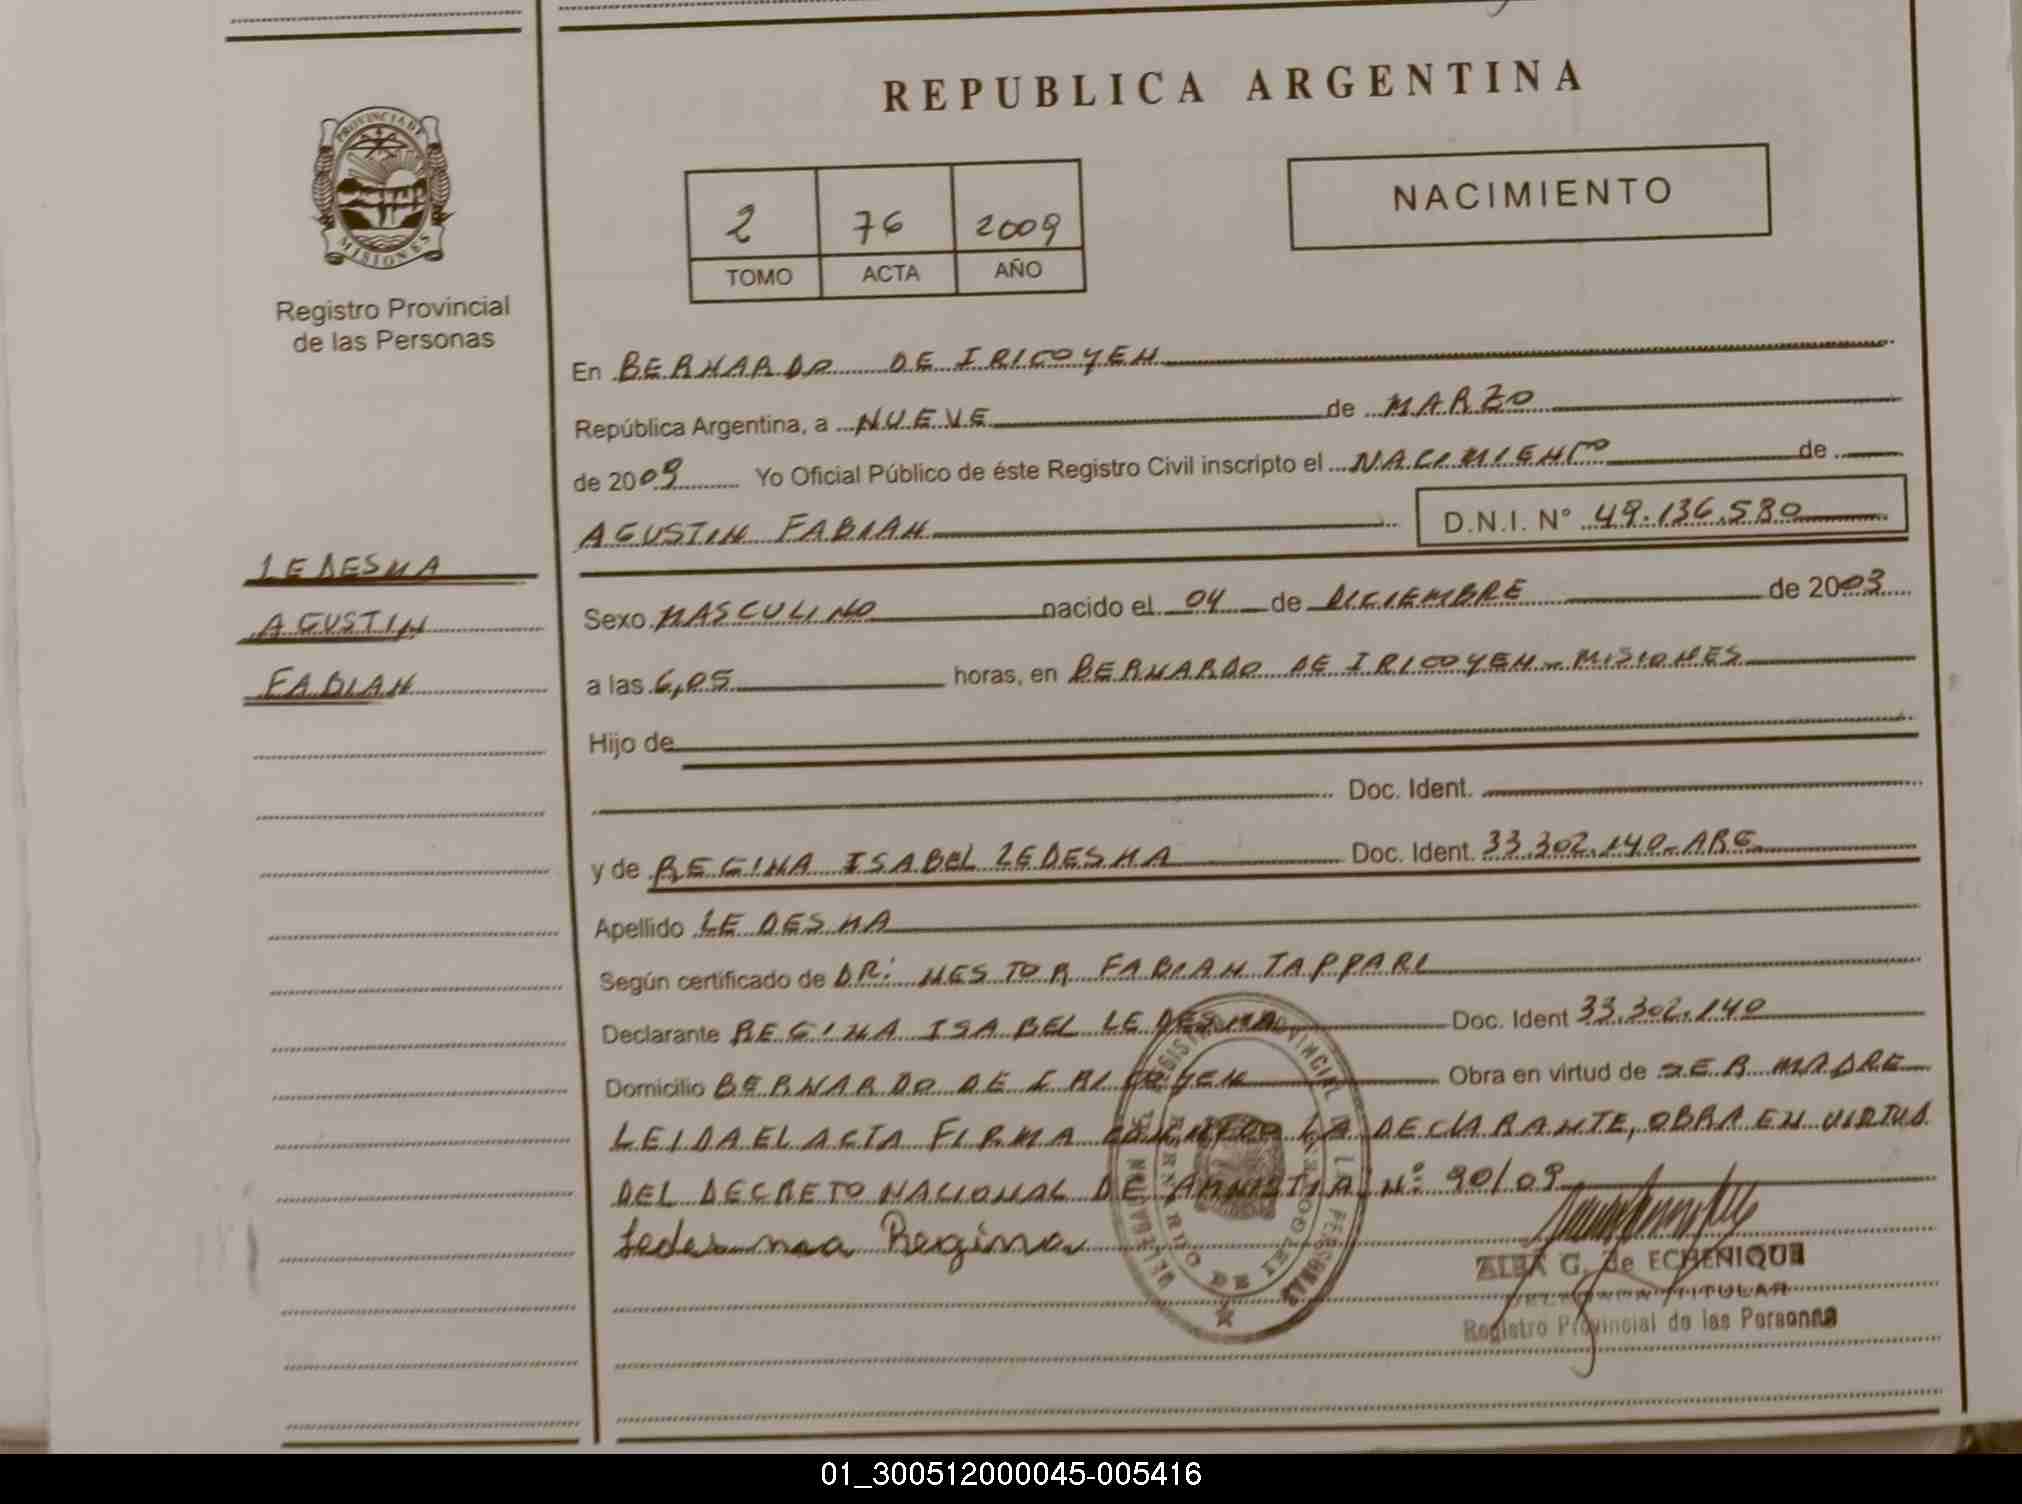 REPUBLICA ARGENTINA
PROVINCIA DE
MISIONES
Registro Provincial
de las Personas
2 76 2009
TOMO ACTA AÑO
NACIMIENTO
En BERNARDO DE IRIGOYEN
República Argentina, a NUEVE de MARZO
de 2009 Yo Oficial Público de éste Registro Civil inscripto el NACIMIENTO de
AGUSTIN FABIAN D.N.I. N° 49.136.580
LEDESMA
AGUSTIN
FABIAN
Sexo MASCULINO nacido el 04 de DICIEMBRE de 2003
a las 6,05 horas, en BERNARDO DE IRIGOYEN - MISIONES
Hijo de
Doc. Ident.
y de REGINA ISABEL LEDESMA Doc. Ident. 33.302.140-ARG
Apellido LEDESMA
Según certificado de DR: NESTOR FABIAN TAPPARI
Declarante REGINA ISABEL LEDESMA Doc. Ident 33.302.140
Domicilio BERNARDO DE IRIGOYEN Obra en virtud de SER MADRE
LEIDA EL ACTA FIRMA CONMIGO LA DECLARANTE, OBRA EN VIRTUD
DEL DECRETO NACIONAL DE AMNISTIA N: 90/09
Ledesma Regina
ALBA G. de ECHENIQUE
DELEGADA TITULAR
Registro Provincial de las Personas
REGISTRO PROVINCIAL DE LAS PERSONAS
BERNARDO DE IRIGOYEN
01_300512000045-005416